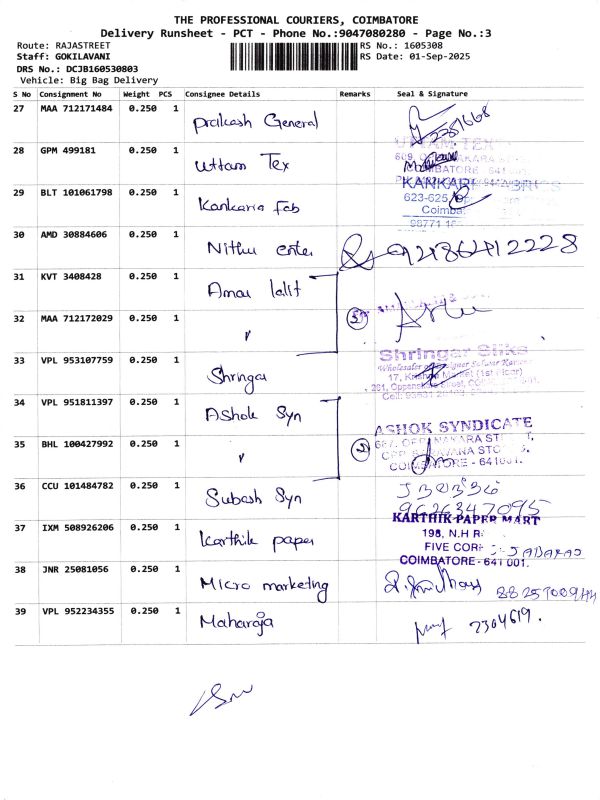 THE PROFESSIONAL COURIERS, COIMBATORE
Delivery Runsheet - PCT - Phone No.:9047080280 - Page No.:3
Route: RAJASTREET
RS No.: 1605308
Staff: GOKILAVANI
RS Date: 01-Sep-2025
DRS No.: DCJB160530803
Vehicle: Big Bag Delivery
S No Consignment No Weight PCS Consignee Details Remarks Seal & Signature
27 MAA 712171484 0.250 1 Prakash General
28 GPM 499181 0.250 1 Uttam Tex
29 BLT 101061798 0.250 1 Kankaria Fab
KANKARI
623-625
Coimba
98771
30 AMD 30884606 0.250 1 Nithu enter
31 KVT 3408428 0.250 1 Amar lalit
32 MAA 712172029 0.250 1 "
33 VPL 953107759 0.250 1 Shringar
Shringar Silks
17, Market (1st Floor)
34 VPL 951811397 0.250 1 Ashok Syn
ASHOK SYNDICATE
35 BHL 100427992 0.250 1 " 2
COIMBATORE - 641001.
36 CCU 101484782 0.250 1 Subash Syn
9626347095
37 IXM 508926206 0.250 1 Karthik paper
KARTHIK PAPER MART
198, N.H R
FIVE COR
COIMBATORE - 641 001.
38 JNR 25081056 0.250 1 Micro marketing
39 VPL 952234355 0.250 1 Maharaja 2304619.